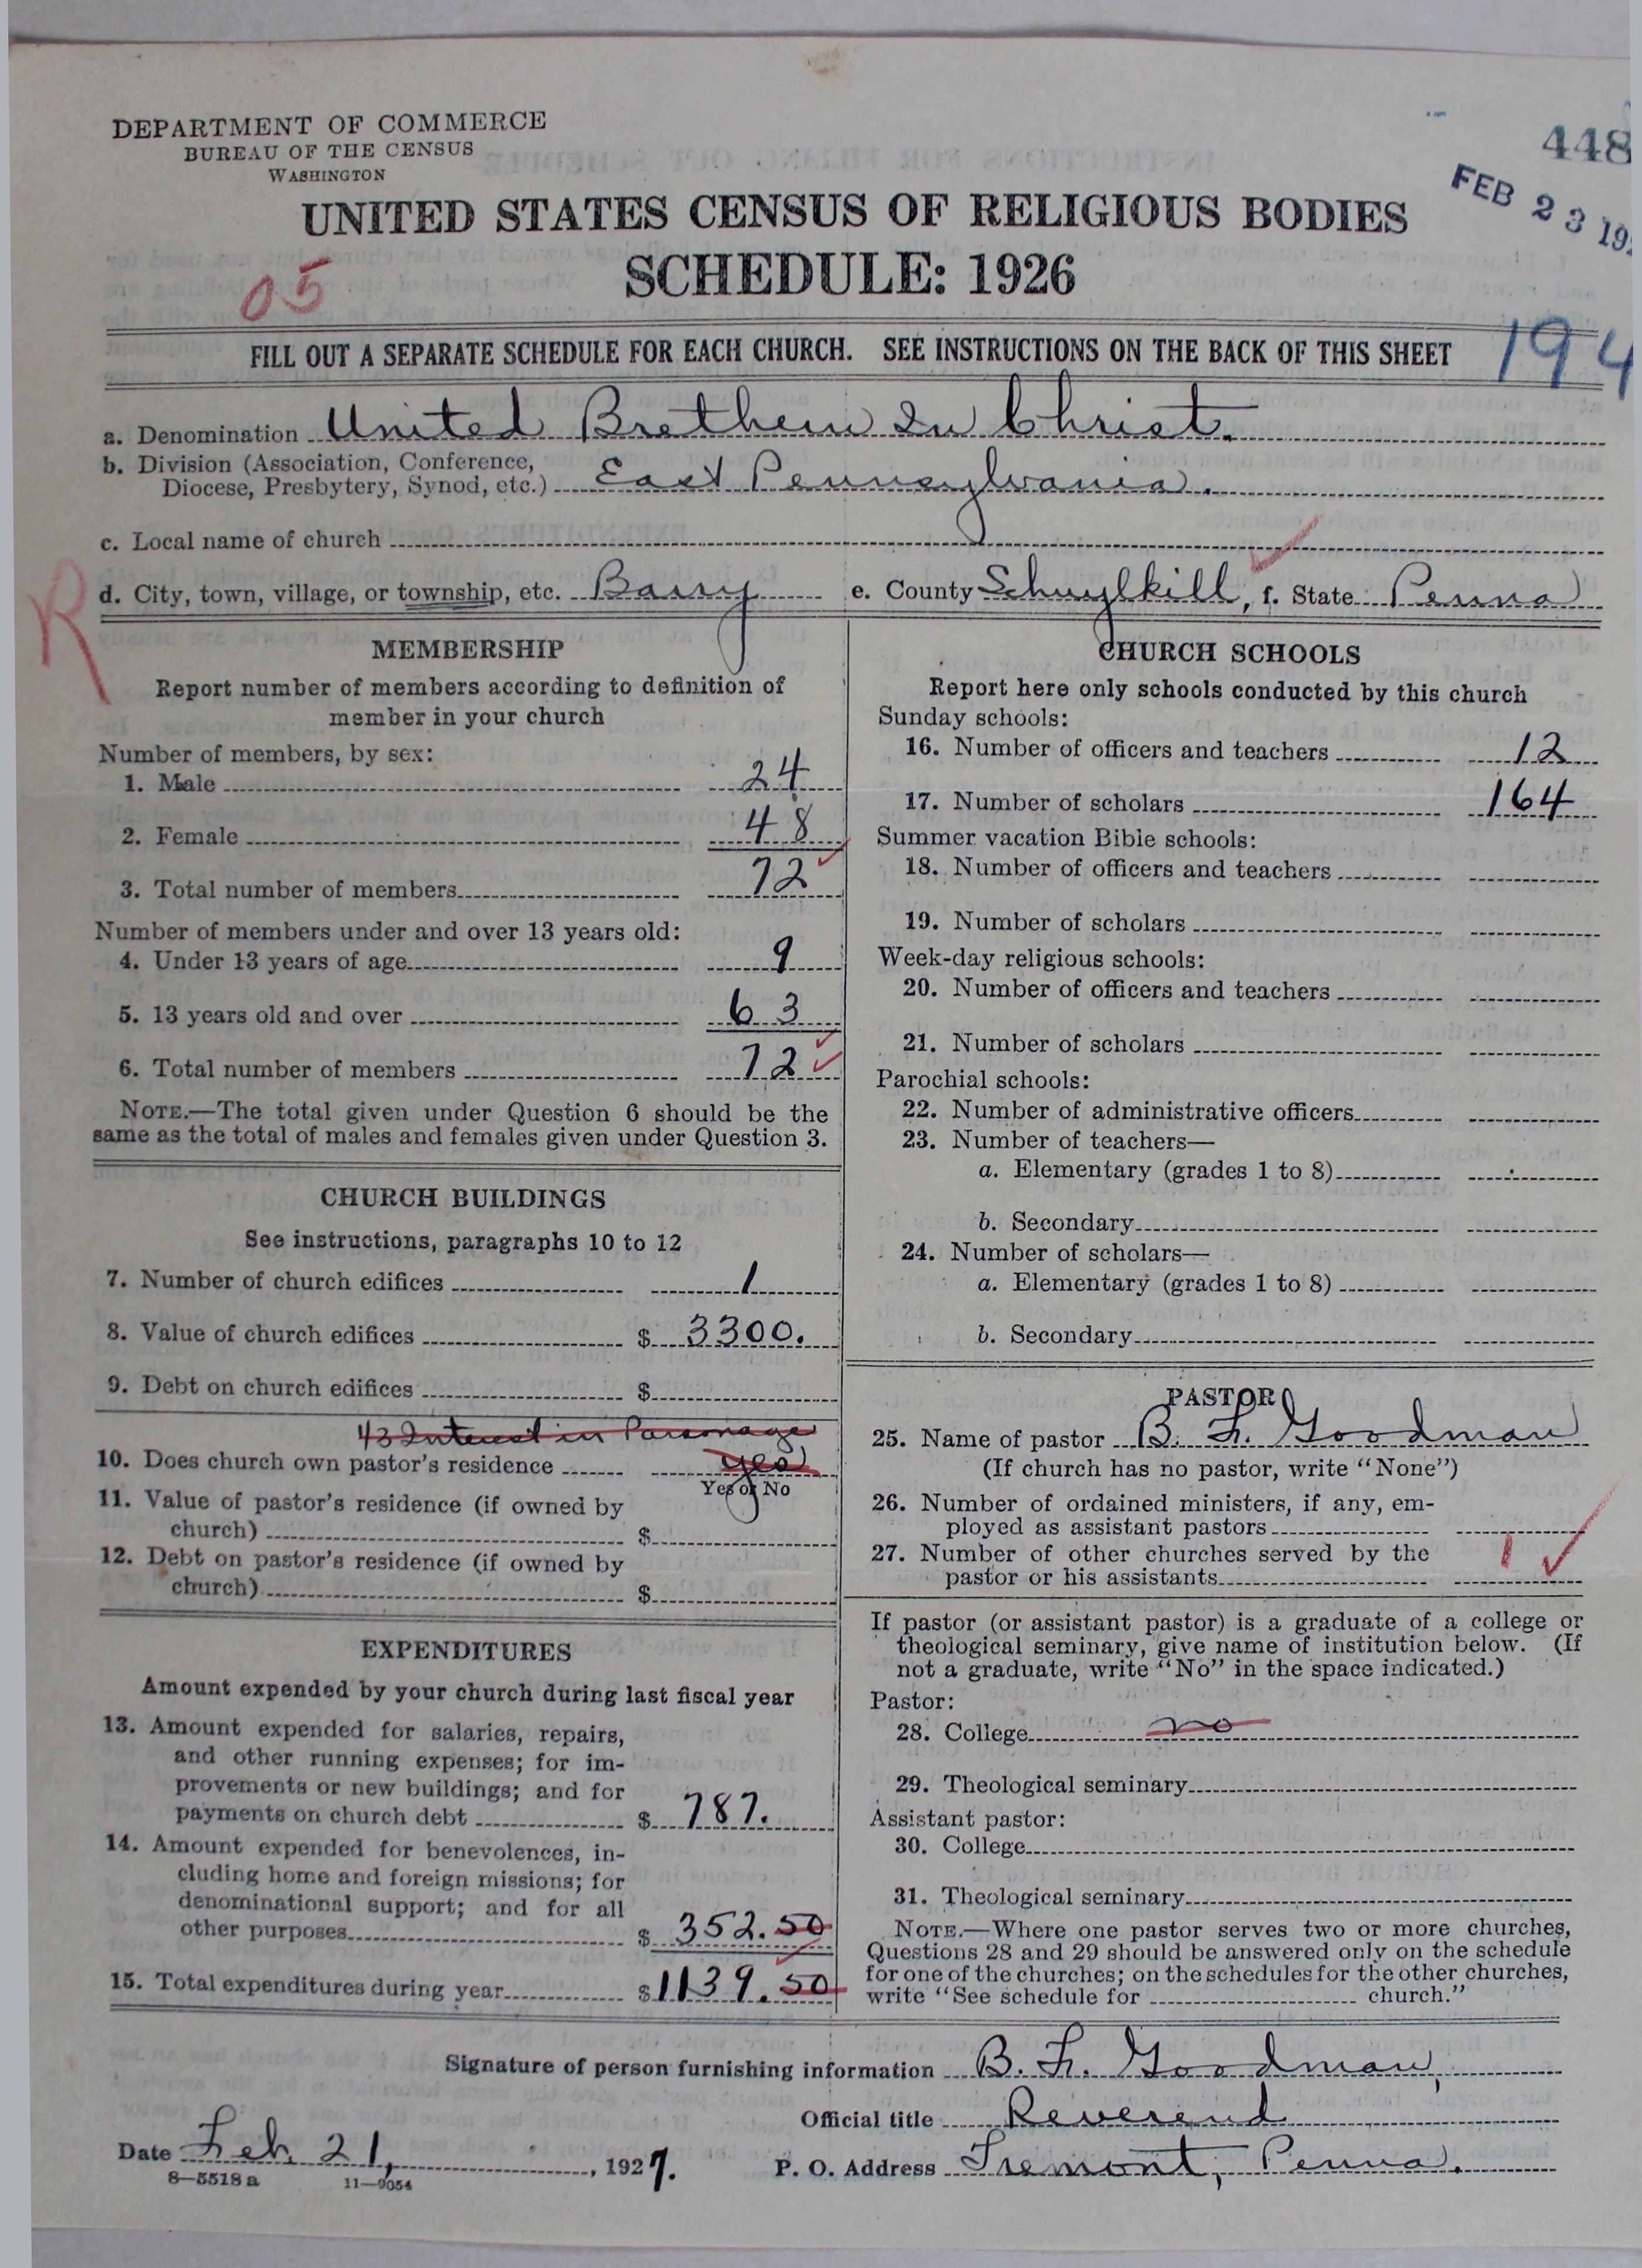 DEPARTMENT OF COMMERCE
BUREAU OF THE CENSUS
WASHINGTON
448
FEB 23 192
UNITED STATES CENSUS OF RELIGIOUS BODIES
SCHEDULE: 1926
05
FILL OUT A SEPARATE SCHEDULE FOR EACH CHURCH. SEE INSTRUCTIONS ON THE BACK OF THIS SHEET
194
a. Denomination United Brethern In Christ.
b. Division (Association, Conference,
Diocese, Presbytery, Synod, etc.) East Pennsylvania.
c. Local name of church
R
d. City, town, village, or township, etc. Barry e. County Schuylkill, f. State Penna
MEMBERSHIP
Report number of members according to definition of
member in your church
Number of members, by sex:
1. Male 24
2. Female 48
3. Total number of members 72
Number of members under and over 13 years old:
4. Under 13 years of age 9
5. 13 years old and over 63
6. Total number of members 72
NOTE.—The total given under Question 6 should be the
same as the total of males and females given under Question 3.
CHURCH BUILDINGS
See instructions, paragraphs 10 to 12
7. Number of church edifices 1
8. Value of church edifices $ 3300.
9. Debt on church edifices $
43 Interest in Parsonage
10. Does church own pastor's residence Yes
Yes or No
11. Value of pastor's residence (if owned by
church) $
12. Debt on pastor's residence (if owned by
church) $
EXPENDITURES
Amount expended by your church during last fiscal year
13. Amount expended for salaries, repairs,
and other running expenses; for im-
provements or new buildings; and for
payments on church debt $ 787.
14. Amount expended for benevolences, in-
cluding home and foreign missions; for
denominational support; and for all
other purposes $ 352.50
15. Total expenditures during year $ 1139.50
CHURCH SCHOOLS
Report here only schools conducted by this church
Sunday schools:
16. Number of officers and teachers 12
17. Number of scholars 164
Summer vacation Bible schools:
18. Number of officers and teachers
19. Number of scholars
Week-day religious schools:
20. Number of officers and teachers
21. Number of scholars
Parochial schools:
22. Number of administrative officers
23. Number of teachers—
a. Elementary (grades 1 to 8)
b. Secondary
24. Number of scholars—
a. Elementary (grades 1 to 8)
b. Secondary
PASTOR
25. Name of pastor B. F. Goodman
(If church has no pastor, write "None")
26. Number of ordained ministers, if any, em-
ployed as assistant pastors
27. Number of other churches served by the
pastor or his assistants 1
If pastor (or assistant pastor) is a graduate of a college or
theological seminary, give name of institution below. (If
not a graduate, write "No" in the space indicated.)
Pastor:
28. College no
29. Theological seminary
Assistant pastor:
30. College
31. Theological seminary
NOTE.—Where one pastor serves two or more churches,
Questions 28 and 29 should be answered only on the schedule
for one of the churches; on the schedules for the other churches,
write "See schedule for church."
Signature of person furnishing information B. F. Goodman,
Official title Reverend
Date Feb. 21, 1927.
P. O. Address Tremont, Penna.
8—5518a 11—9054